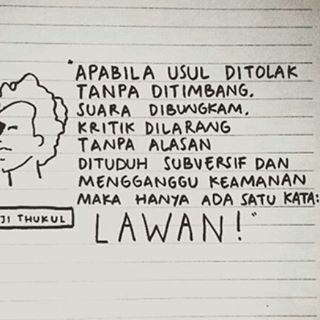 "APABILA USUL DITOLAK
TANPA DITIMBANG,
SUARA DIBUNGKAM,
KRITIK DILARANG
TANPA ALASAN
DITUDUH SUBVERSIF DAN
MENGGANGGU KEAMANAN
MAKA HANYA ADA SATU KATA:
LAWAN!"
JI THUKUL